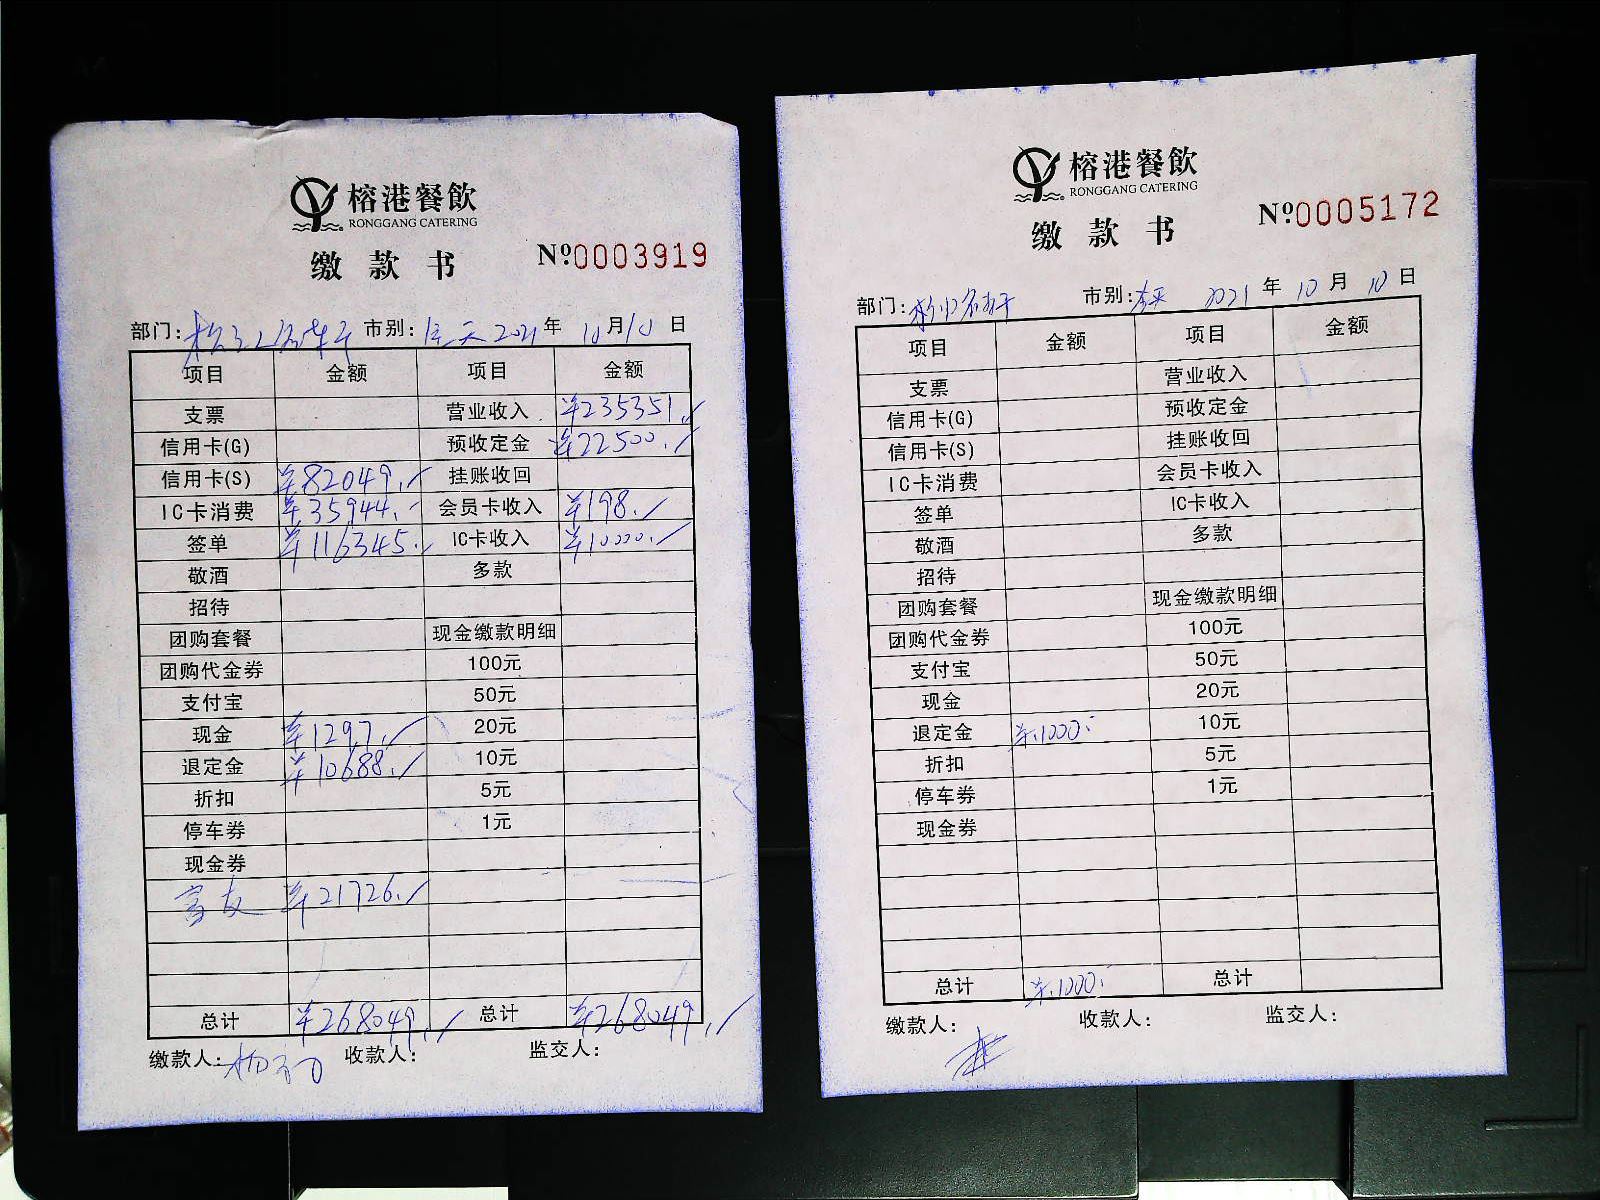 榕港餐飲
RONGGANG CATERING
缴款书
№0003919
部门: 市别: 全天 2021年 10月10日
项目 金额 项目 金额
支票 营业收入 ¥235351.
信用卡(G) 预收定金 ¥22500.
信用卡(S) ¥82049. 挂账收回
IC卡消费 ¥35944. 会员卡收入 ¥198.
签单 ¥116345. IC卡收入 ¥10000.
敬酒 多款
招待
团购套餐 现金缴款明细
团购代金券 100元
支付宝 50元
现金 ¥1297. 20元
退定金 ¥10688. 10元
折扣 5元
停车券 1元
现金券
富友 ¥21726.
总计 ¥268049. 总计 ¥268049.
缴款人: 收款人: 监交人:
榕港餐飲
RONGGANG CATERING
缴款书
№0005172
部门: 市别: 2021年 10月 10日
项目 金额 项目 金额
支票 营业收入
信用卡(G) 预收定金
信用卡(S) 挂账收回
IC卡消费 会员卡收入
签单 IC卡收入
敬酒 多款
招待
团购套餐 现金缴款明细
团购代金券 100元
支付宝 50元
现金 20元
退定金 ¥1000. 10元
折扣 5元
停车券 1元
现金券
总计 ¥1000. 总计
缴款人: 收款人: 监交人: